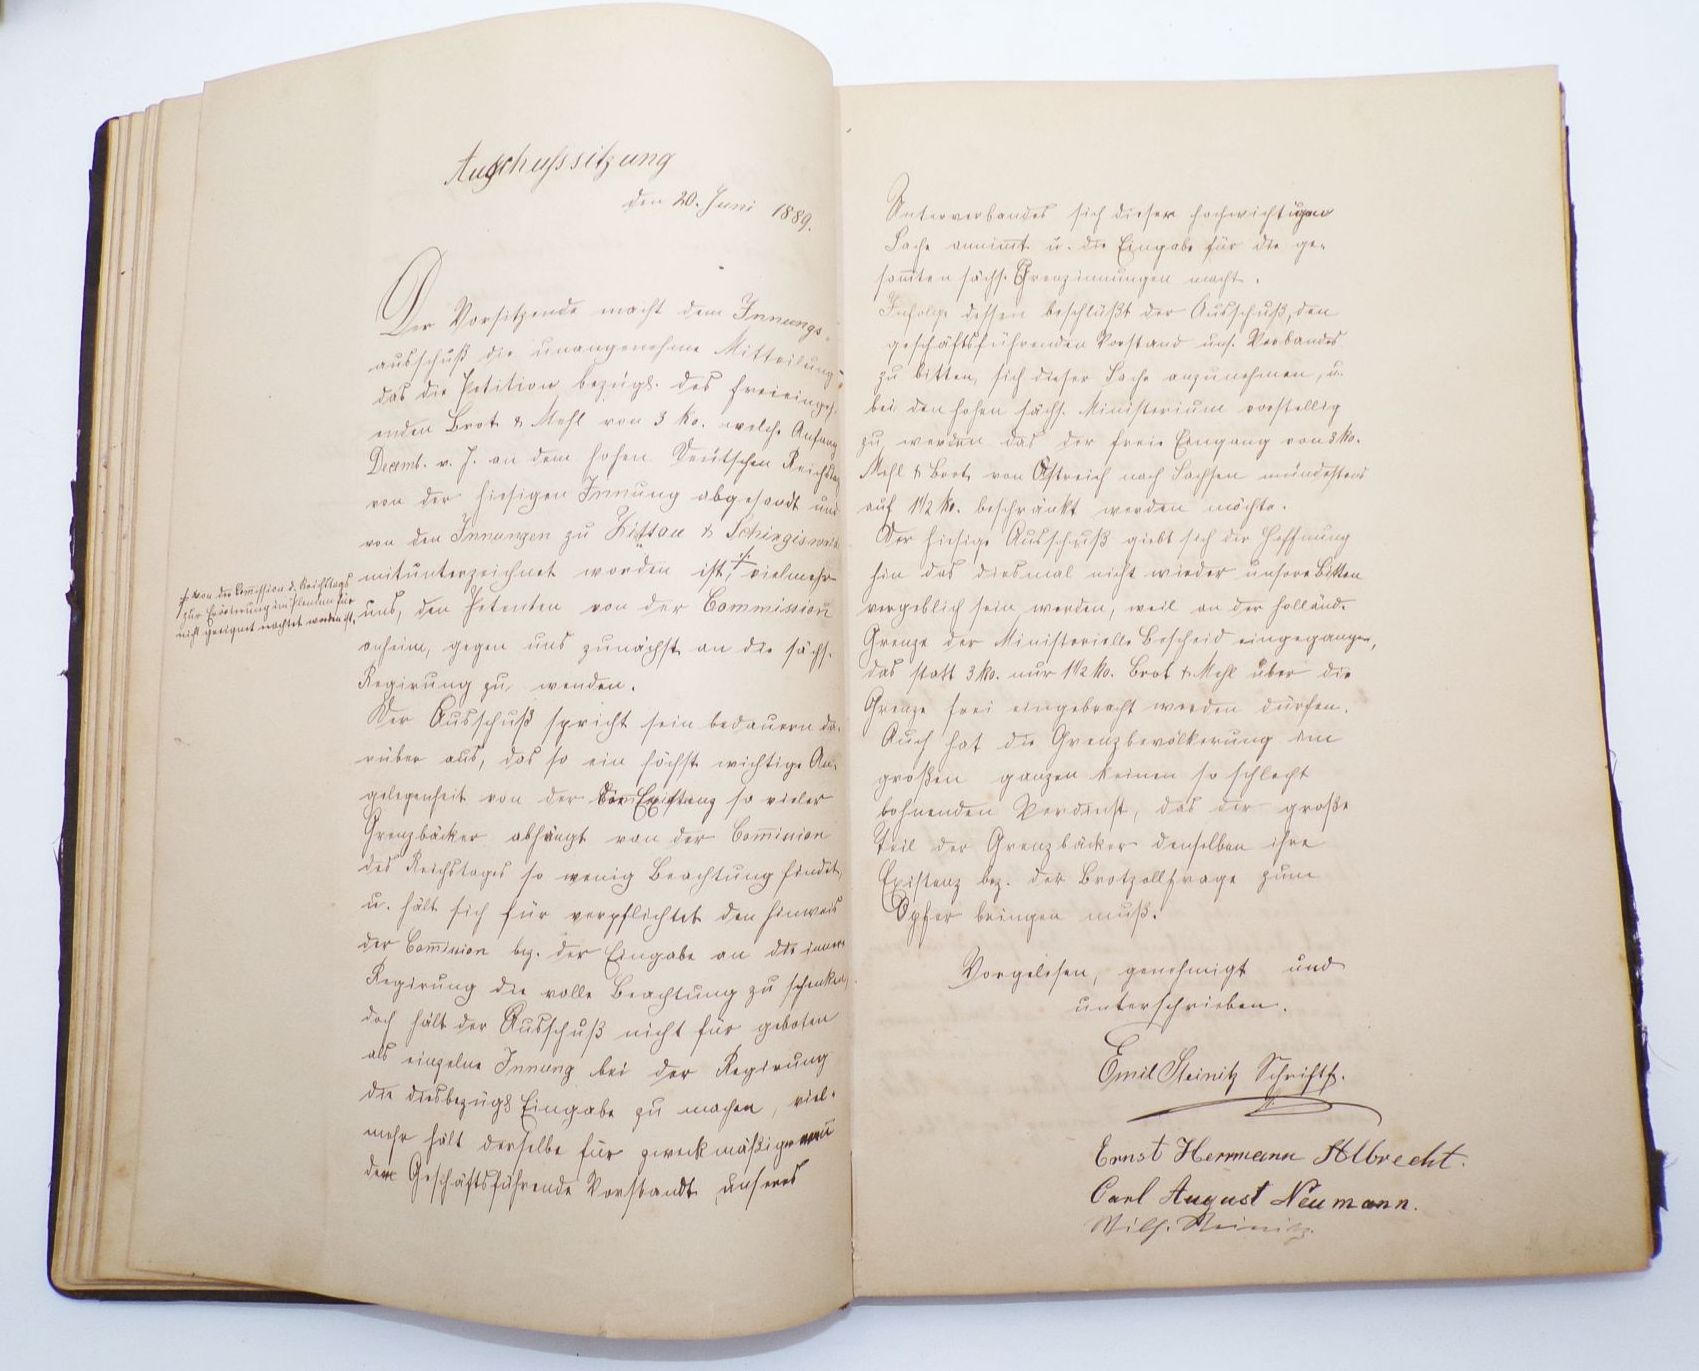 Ausschussitzung
den 20. Juni 1889.
Der Vorsitzende macht dem Innungs-
ausschuß die unangenehme Mitteilung,
das die Petition bezügl. des freieingeh-
enden Brot & Mehl von 3 ko. welche Anfang
Decemb. v. J. an dem hohen Deutschen Reichstag
von der hiesigen Innung abgesandt und
von den Innungen zu Zittau & Schirgiswalde
mitunterzeichnet worden ist, vielmehr
+ von der Commission d. Reichstags
zur Erörterung im Plenum für
nicht geeignet erachtet worden ist,
uns, den Petenten von der Commission
anheim, gegen uns zunächst an die sächs.
Regirung zu wenden.
Der Ausschuß spricht sein bedauern da-
rüber aus, das so ein höchst wichtige An-
gelegenheit von der Existenz so vieler
Grenzbäcker abhängt von der Commission
des Reichstages so wenig Beachtung findet,
u. hält sich für verpflichtet den hinweis
der Commission bez. der Eingabe an die innere
Regirung die volle Beachtung zu schenken,
doch hält der Ausschuß nicht für geboten
als einzelne Innung bei der Regirung
die diesbezügl. Eingabe zu machen, viel-
mehr hält derselbe für zweckmäßiger wenn
der Geschäftsführende Vorstandt unseres
Unterverbandes sich dieser hochwichtigen
Sache annimt u. die Eingabe für die ge-
samten sächs. Grenzinnungen macht.
Infolge dessen beschlüßt der Ausschuß, den
geschäftsführenden Vorstand uns. Verbandes
zu bitten, sich dieser Sache anzunehmen, u.
bei den hohen sächs. Ministerium vorstellig
zu werden das der freie Eingang von 3 ko.
Mehl & Brot von Östreich nach Sachsen mindestens
auf 1 1/2 ko. beschränkt werden möchte.
Der hiesige Ausschuß giebt sich der Hoffnung
hin das diesmal nicht wieder unsere Bitten
vergeblich sein werden, weil an der holländ.
Grenze der Ministerielle Bescheid eingegangen,
das statt 3 ko. nur 1 1/2 ko. Brot & Mehl über die
Grenze frei eingebracht werden dürfen.
Auch hat die Grenzbevölkerung im
großen ganzen keinen so schlecht
lohnenden Verdienst, das der große
Teil der Grenzbäcker denselben ihre
Existenz bez. der Brotzollfrage zum
Opfer bringen muß.
Vorgelesen, genehmigt und
unterschrieben.
Emil Steinitz Schriftf.
Ernst Herrmann Albrecht.
Carl August Neumann.
Wilh. Steinitz.